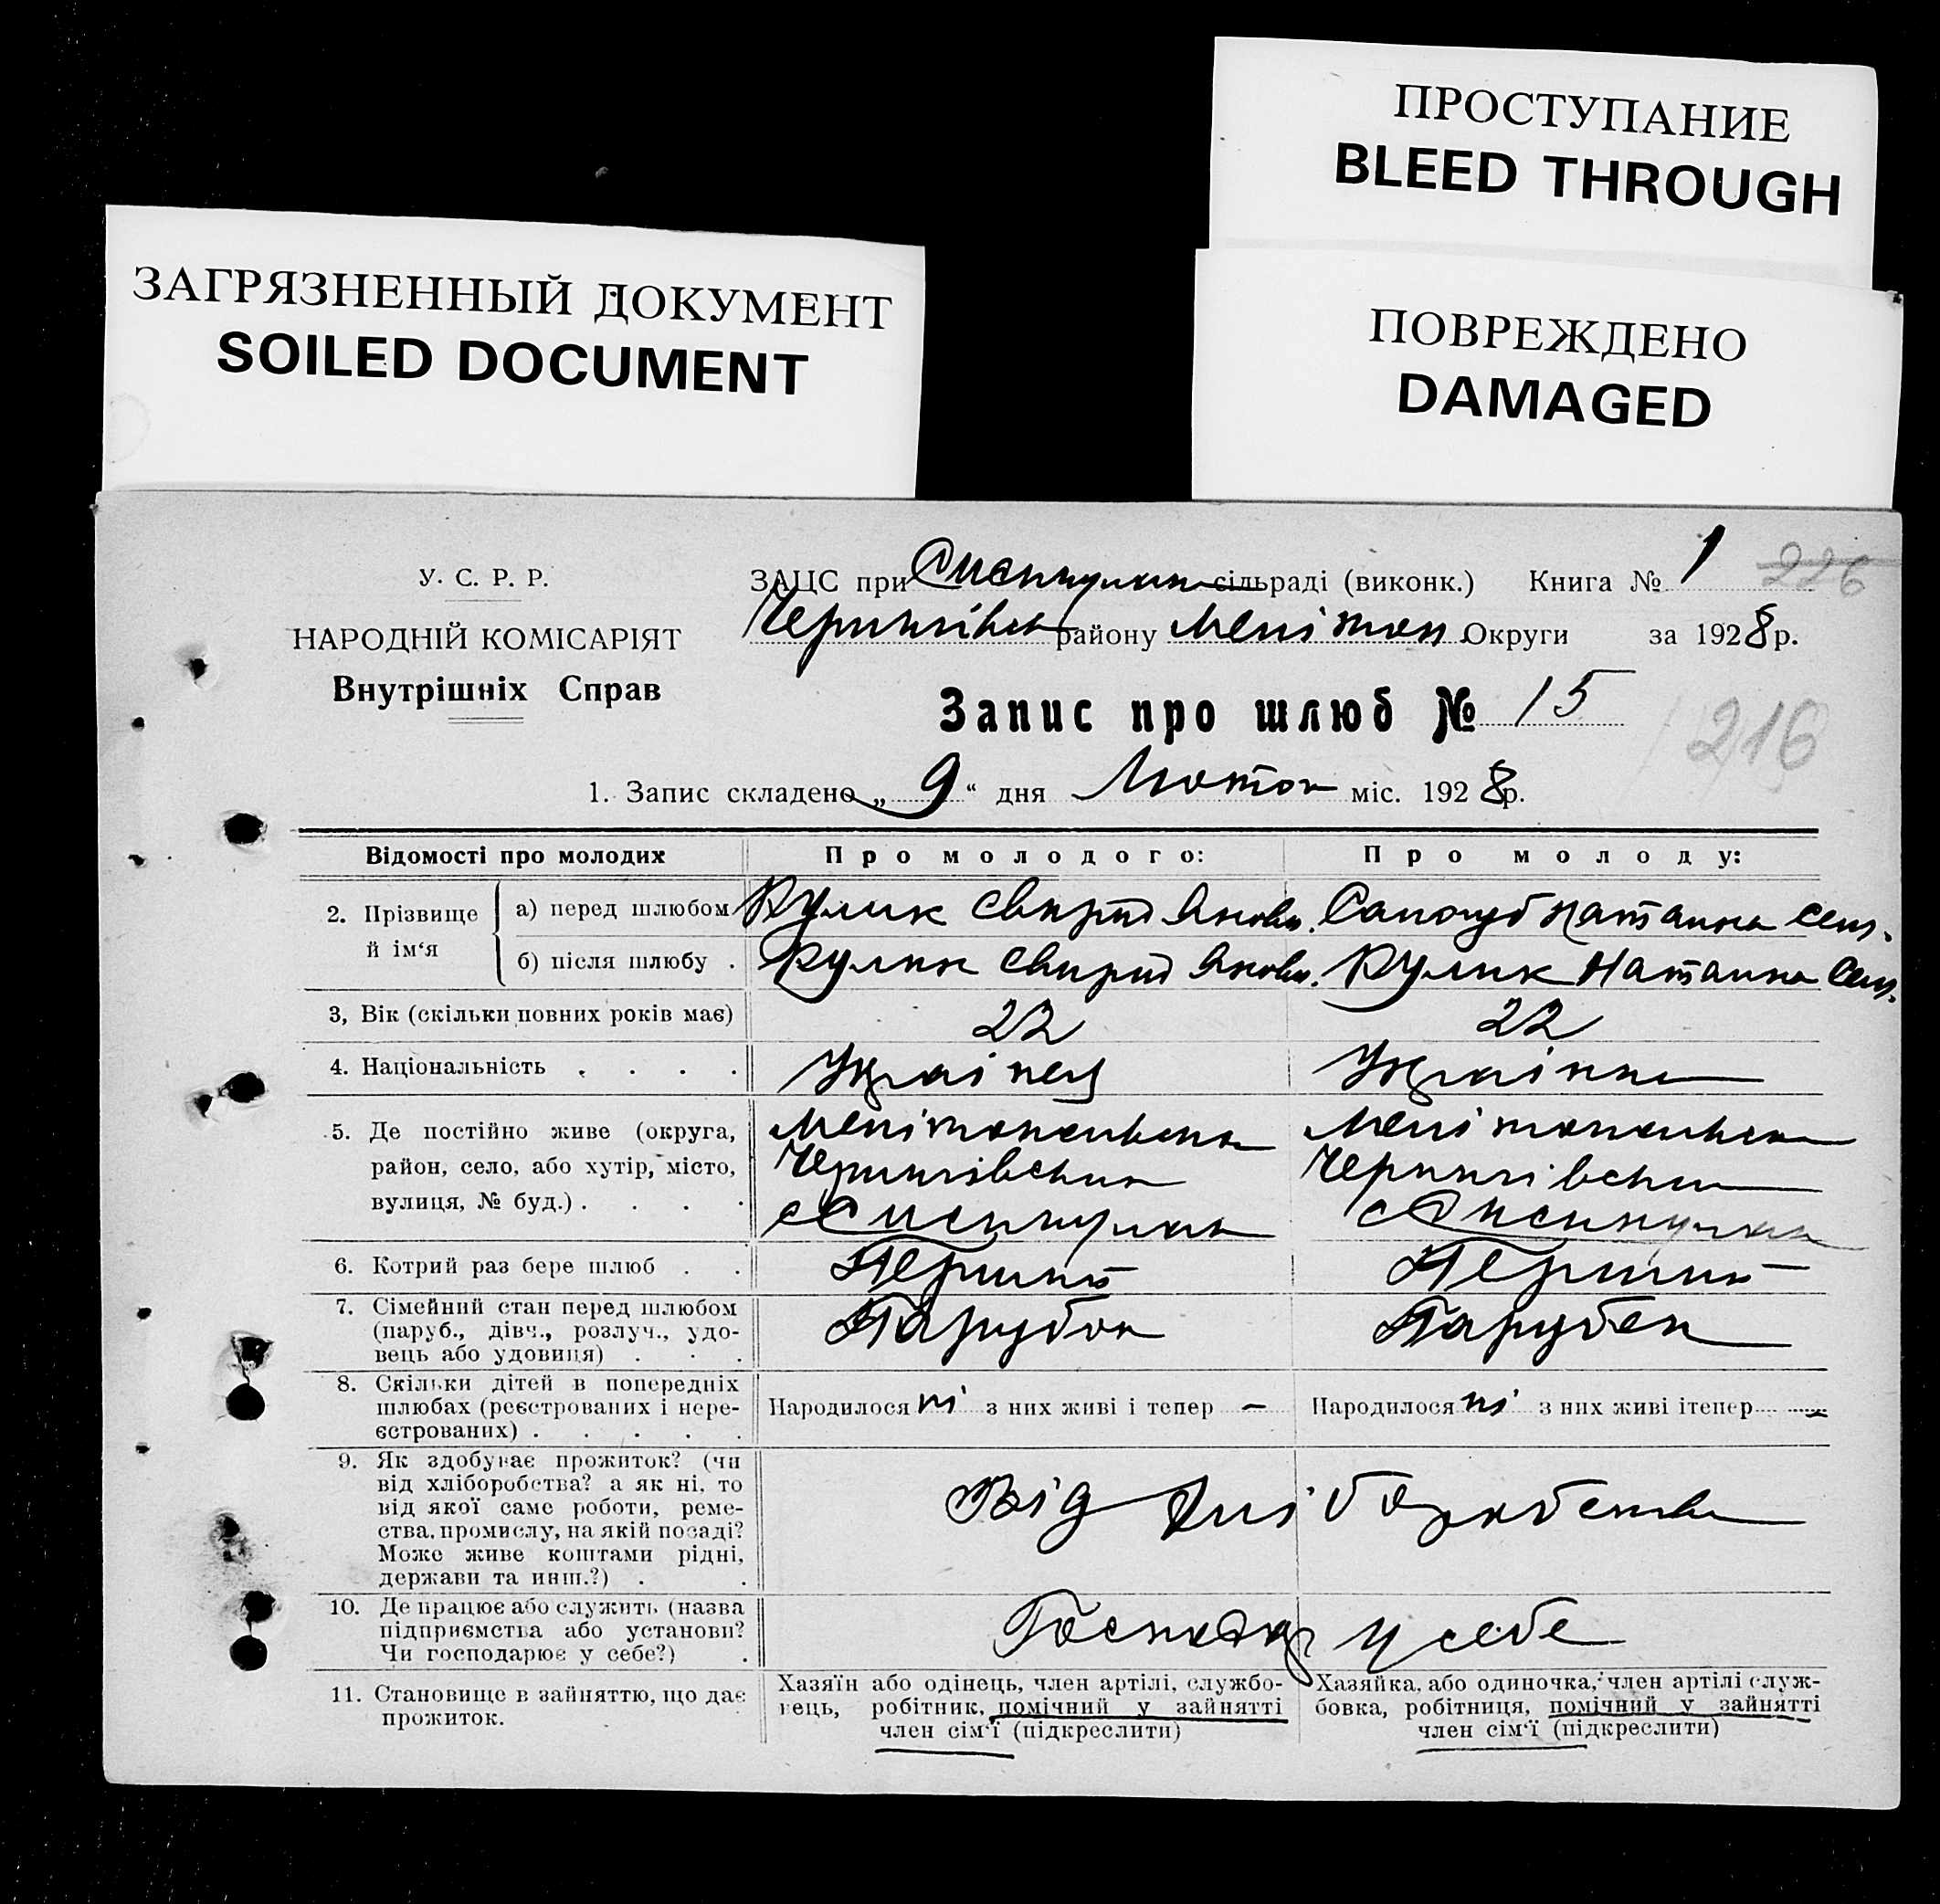 ПРОСТУПАНИЕ
BLEED THROUGH
ЗАГРЯЗНЕННЫЙ ДОКУМЕНТ
SOILED DOCUMENT
ПОВРЕЖДЕНО
DAMAGED
У. С. Р. Р.
НАРОДНІЙ КОМІСАРІЯТ
Внутрішніх Справ
ЗАЦС при сільраді (виконк.) Книга № 1 226
Чернигівск району Мелітоп Округи за 1928 р.
Запис про шлюб № 15
216
1. Запис складено „ 9 “ дня Лютого міс. 1928 р.
Відомості про молодих Про молодого: Про молоду:
2. Прізвище й ім‘я
а) перед шлюбом Кулик Свирид Яковл. Самогуб Наталка Сем.
б) після шлюбу . Кулик Свирид Яковл. Кулик Наталка Сем.
3, Вік (скільки повних років має) 22 22
4. Національність . . . . Украінец Украінка
5. Де постійно живе (округа, район, село, або хутір, місто, вулиця, № буд.) . . . .
Мелітопольська Мелітопольська
Чернигівська Чернигівська
6. Котрий раз бере шлюб . . Перший Перший
7. Сімейний стан перед шлюбом (паруб., дівч., розлуч., удовець або удовиця) . . . Парубок Парубок
8. Скільки дітей в попередніх шлюбах (реєстрованих і нереєстрованих) . . . . .
Народилося ні з них живі і тепер – Народилося ні з них живі ітепер –
9. Як здобуває прожиток? (чи від хліборобства? а як ні, то від якої саме роботи, ремества, промислу, на якій посаді? Може живе коштами рідні, держави та инш.?) . .
Від хліборобства
10. Де працює або служить (назва підприємства або установи? Чи господарює у себе?) .
Господар у себе
11. Становище в зайняттю, що дає прожиток.
Хазяїн або одінець, член артілі, службовець, робітник, помічний у зайнятті член сім‘ї (підкреслити)
Хазяйка, або одиночка, член артілі службовка, робітниця, помічний у зайнятті член сім‘ї (підкреслити)